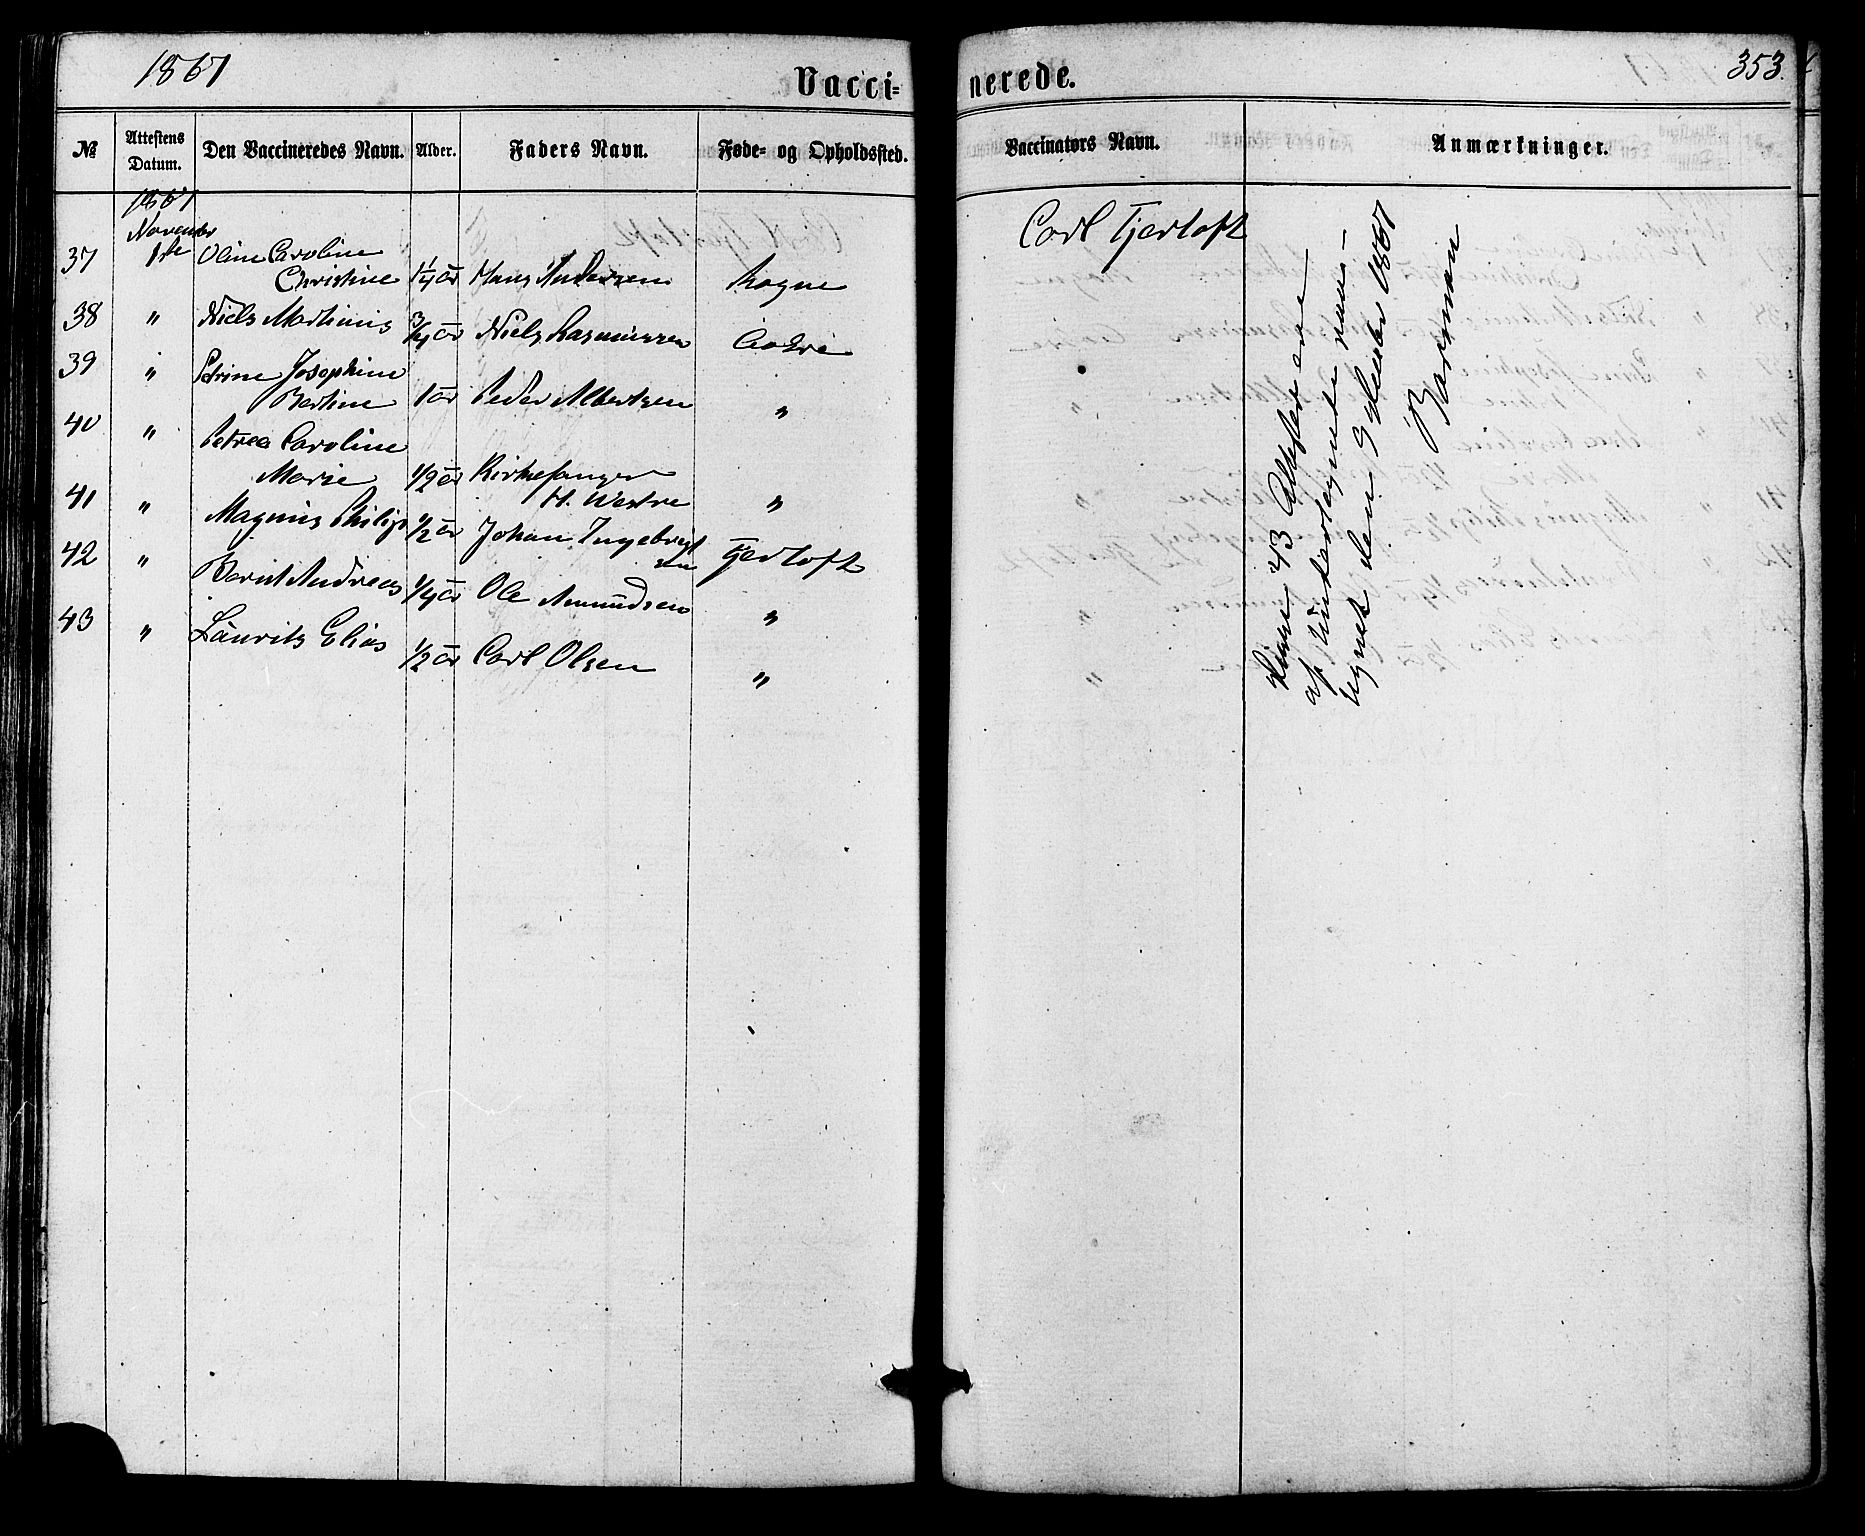 1867
Vacci=
nerede.
353.
№
Attestens Datum.
Den Vaccineredes Navn.
Alder.
Faders Navn.
Føde- og Opholdssted.
Vaccinators Navn.
Anmærkninger.
1867
November
37 1ste Oline Caroline
Christine 1¼ år Hans Andersen Rogne Carl Tjerloft
38 " Niels Martinus ¾ år Niels Rasmussen
39 " Petrine Josephine
Bertine 1 år Peder Albertsen "
40 " Petrea Caroline
Marie 1/2 år Kirkesanger
H. Westre "
41 " Magnus Philip 1/2 år Johan Ingebrigt
sen Tjerloft
42 " Bernt Andreas 1/4 år Ole Amundsen "
43 " Laurits Elias 1/2 år Carl Olsen "
Disse 43 Attester ere
af Undertegnede
den 9 1867